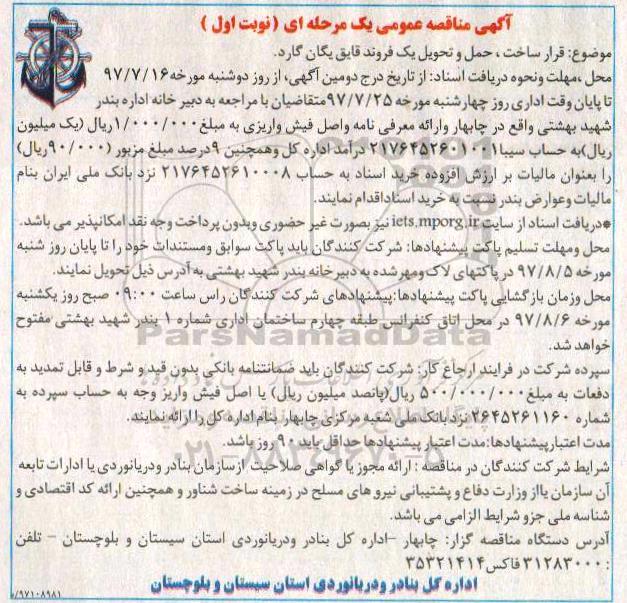 آگهی مناقصه عمومی یک مرحله ای ( نوبت اول )
موضوع: قرار ساخت ، حمل و تحویل یک فروند قایق یگان گارد.
محل ،مهلت ونحوه دریافت اسناد: از تاریخ درج دومین آگهی، از روز دوشنبه مورخه ۹۷/۷/۱۶
تا پایان وقت اداری روز چهارشنبه مورخه ۹۷/۷/۲۵متقاضیان با مراجعه به دبیر خانه اداره بندر
شهید بهشتی واقع در چابهار وارائه معرفی نامه واصل فیش واریزی به مبلغ۱/۰۰۰/۰۰۰ریال (یک میلیون
ریال)به حساب سیبا۲۱۷۶۴۵۲۶۰۱۰۰۱ درآمد اداره کل وهمچنین ۹درصد مبلغ مزبور (۹۰/۰۰۰ریال)
را بعنوان مالیات بر ارزش افزوده خرید اسناد به حساب ۲۱۷۶۴۵۲۶۱۰۰۰۸ نزد بانک ملی ایران بنام
مالیات وعوارض بندر نسبت به خرید اسناداقدام نمایند.
*دریافت اسناد از سایت iets.mporg.ir نیز بصورت غیر حضوری وبدون پرداخت وجه نقد امکانپذیر می باشد.
محل ومهلت تسلیم پاکت پیشنهادها: شرکت کنندگان باید پاکت سوابق ومستندات خود را تا پایان روز شنبه
مورخه ۹۷/۸/۵ در پاکتهای لاک ومهرشده به دبیرخانه بندر شهید بهشتی به آدرس ذیل تحویل نمایند.
محل وزمان بازگشایی پاکت پیشنهادها:پیشنهادهای شرکت کنندگان راس ساعت ۰۹:۰۰ صبح روز یکشنبه
مورخه ۹۷/۸/۶ در محل اتاق کنفرانس طبقه چهارم ساختمان اداری شماره ۱ بندر شهید بهشتی مفتوح
خواهد شد.
سپرده شرکت در فرایند ارجاع کار: شرکت کنندگان باید ضمانتنامه بانکی بدون قید و شرط و قابل تمدید به
دفعات به مبلغ۵۰۰/۰۰۰/۰۰۰ ریال(پانصد میلیون ریال) یا اصل فیش واریز وجه به حساب سپرده به
شماره ۲۶۴۵۲۶۱۱۶۰ نزد بانک ملی شعبه مرکزی چابهار بنام اداره کل را ارائه نمایند.
مدت اعتبارپیشنهادها:مدت اعتبار پیشنهادها حداقل باید ۹۰ روز باشد.
شرایط شرکت کنندگان در مناقصه : ارائه مجوز یا گواهی صلاحیت ازسازمان بنادر ودریانوردی یا ادارات تابعه
آن سازمان یااز وزارت دفاع و پشتیبانی نیروهای مسلح در زمینه ساخت شناور و همچنین ارائه کد اقتصادی و
شناسه ملی جزو شرایط الزامی می باشد.
آدرس دستگاه مناقصه گزار: چابهار -اداره کل بنادر ودریانوردی استان سیستان و بلوچستان - تلفن
: ۳۱۲۸۳۰۰۰ فاکس۳۵۳۲۱۴۱۴
اداره کل بنادر ودریانوردی استان سیستان و بلوچستان
۹۷۱۰۸۹۸۱/ه
ParsNamadData
۰۲۱-۸۸۳۴۹۶۷۰-۵